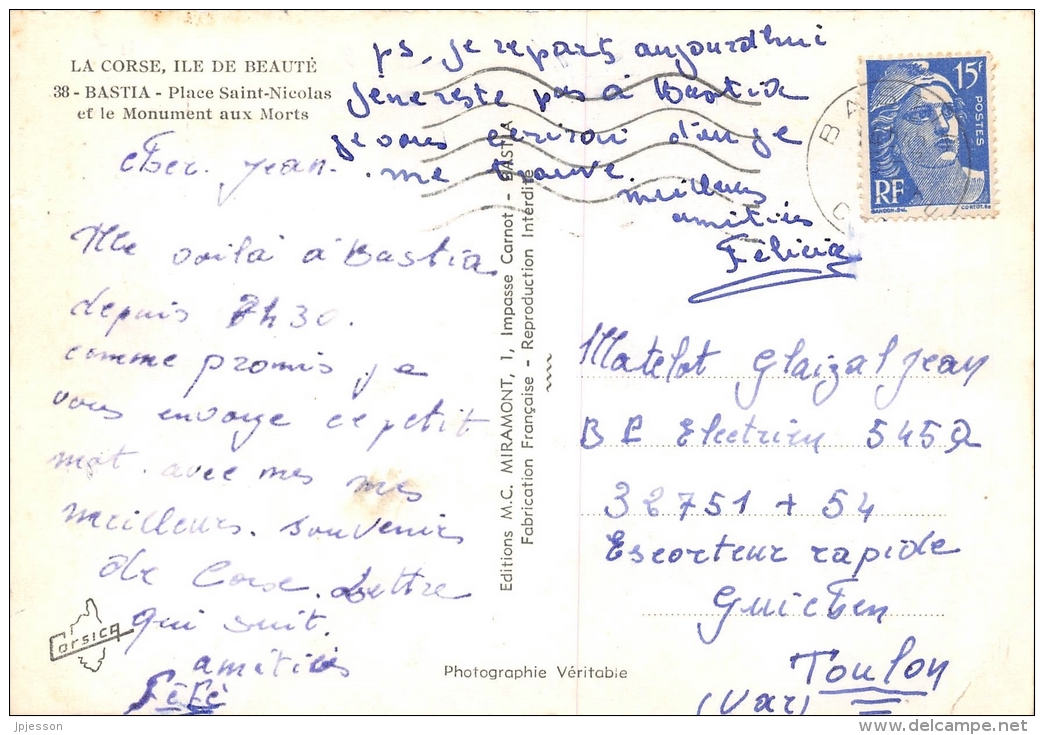 LA CORSE, ILE DE BEAUTÉ
38 - BASTIA - Place Saint-Nicolas
et le Monument aux Morts
ps, je repart aujourd'hui
je ne reste pas à Bastia
je vous écrirai d'où je
me trouve.
meilleurs
amitiés
Félicia
15F
POSTES
RF
GANDON. DEL.
CORTOT. SC
cher. Jean.
Me voilà à Bastia
depuis 7h30.
comme promis je
vous envoye ce petit
mot. avec mes mes
meilleurs. souvenirs
de Corse. Lettre
qui suit.
amitiés
FéFé
Corsica
Editions M.C. MIRAMONT, 1, Impasse Carnot - BASTIA
Fabrication Française - Reproduction Interdite
Photographie Véritable
Matelot Glaizal Jean
BE Electrien 545
32751 + 54
Escorteur rapide
Guichen
Toulon
(Var)
jpjesson
www.delcampe.net